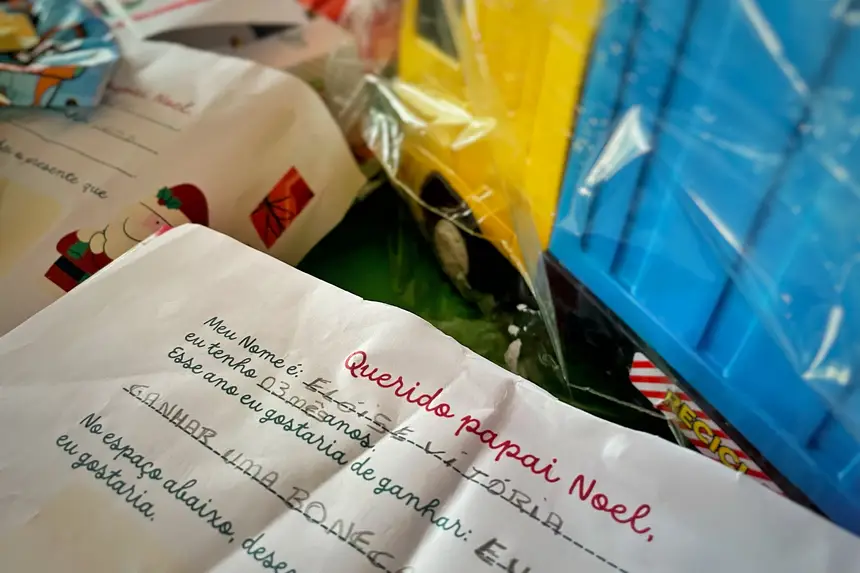 Noel
presente que
Querido papai Noel,
Meu Nome é: ELOISE VITÓRIA
eu tenho 03 mêsanos.
Esse ano eu gostaria de ganhar: EU
GANHAR UMA BONECA
No espaço abaixo, dese
eu gostaria.
RECICL